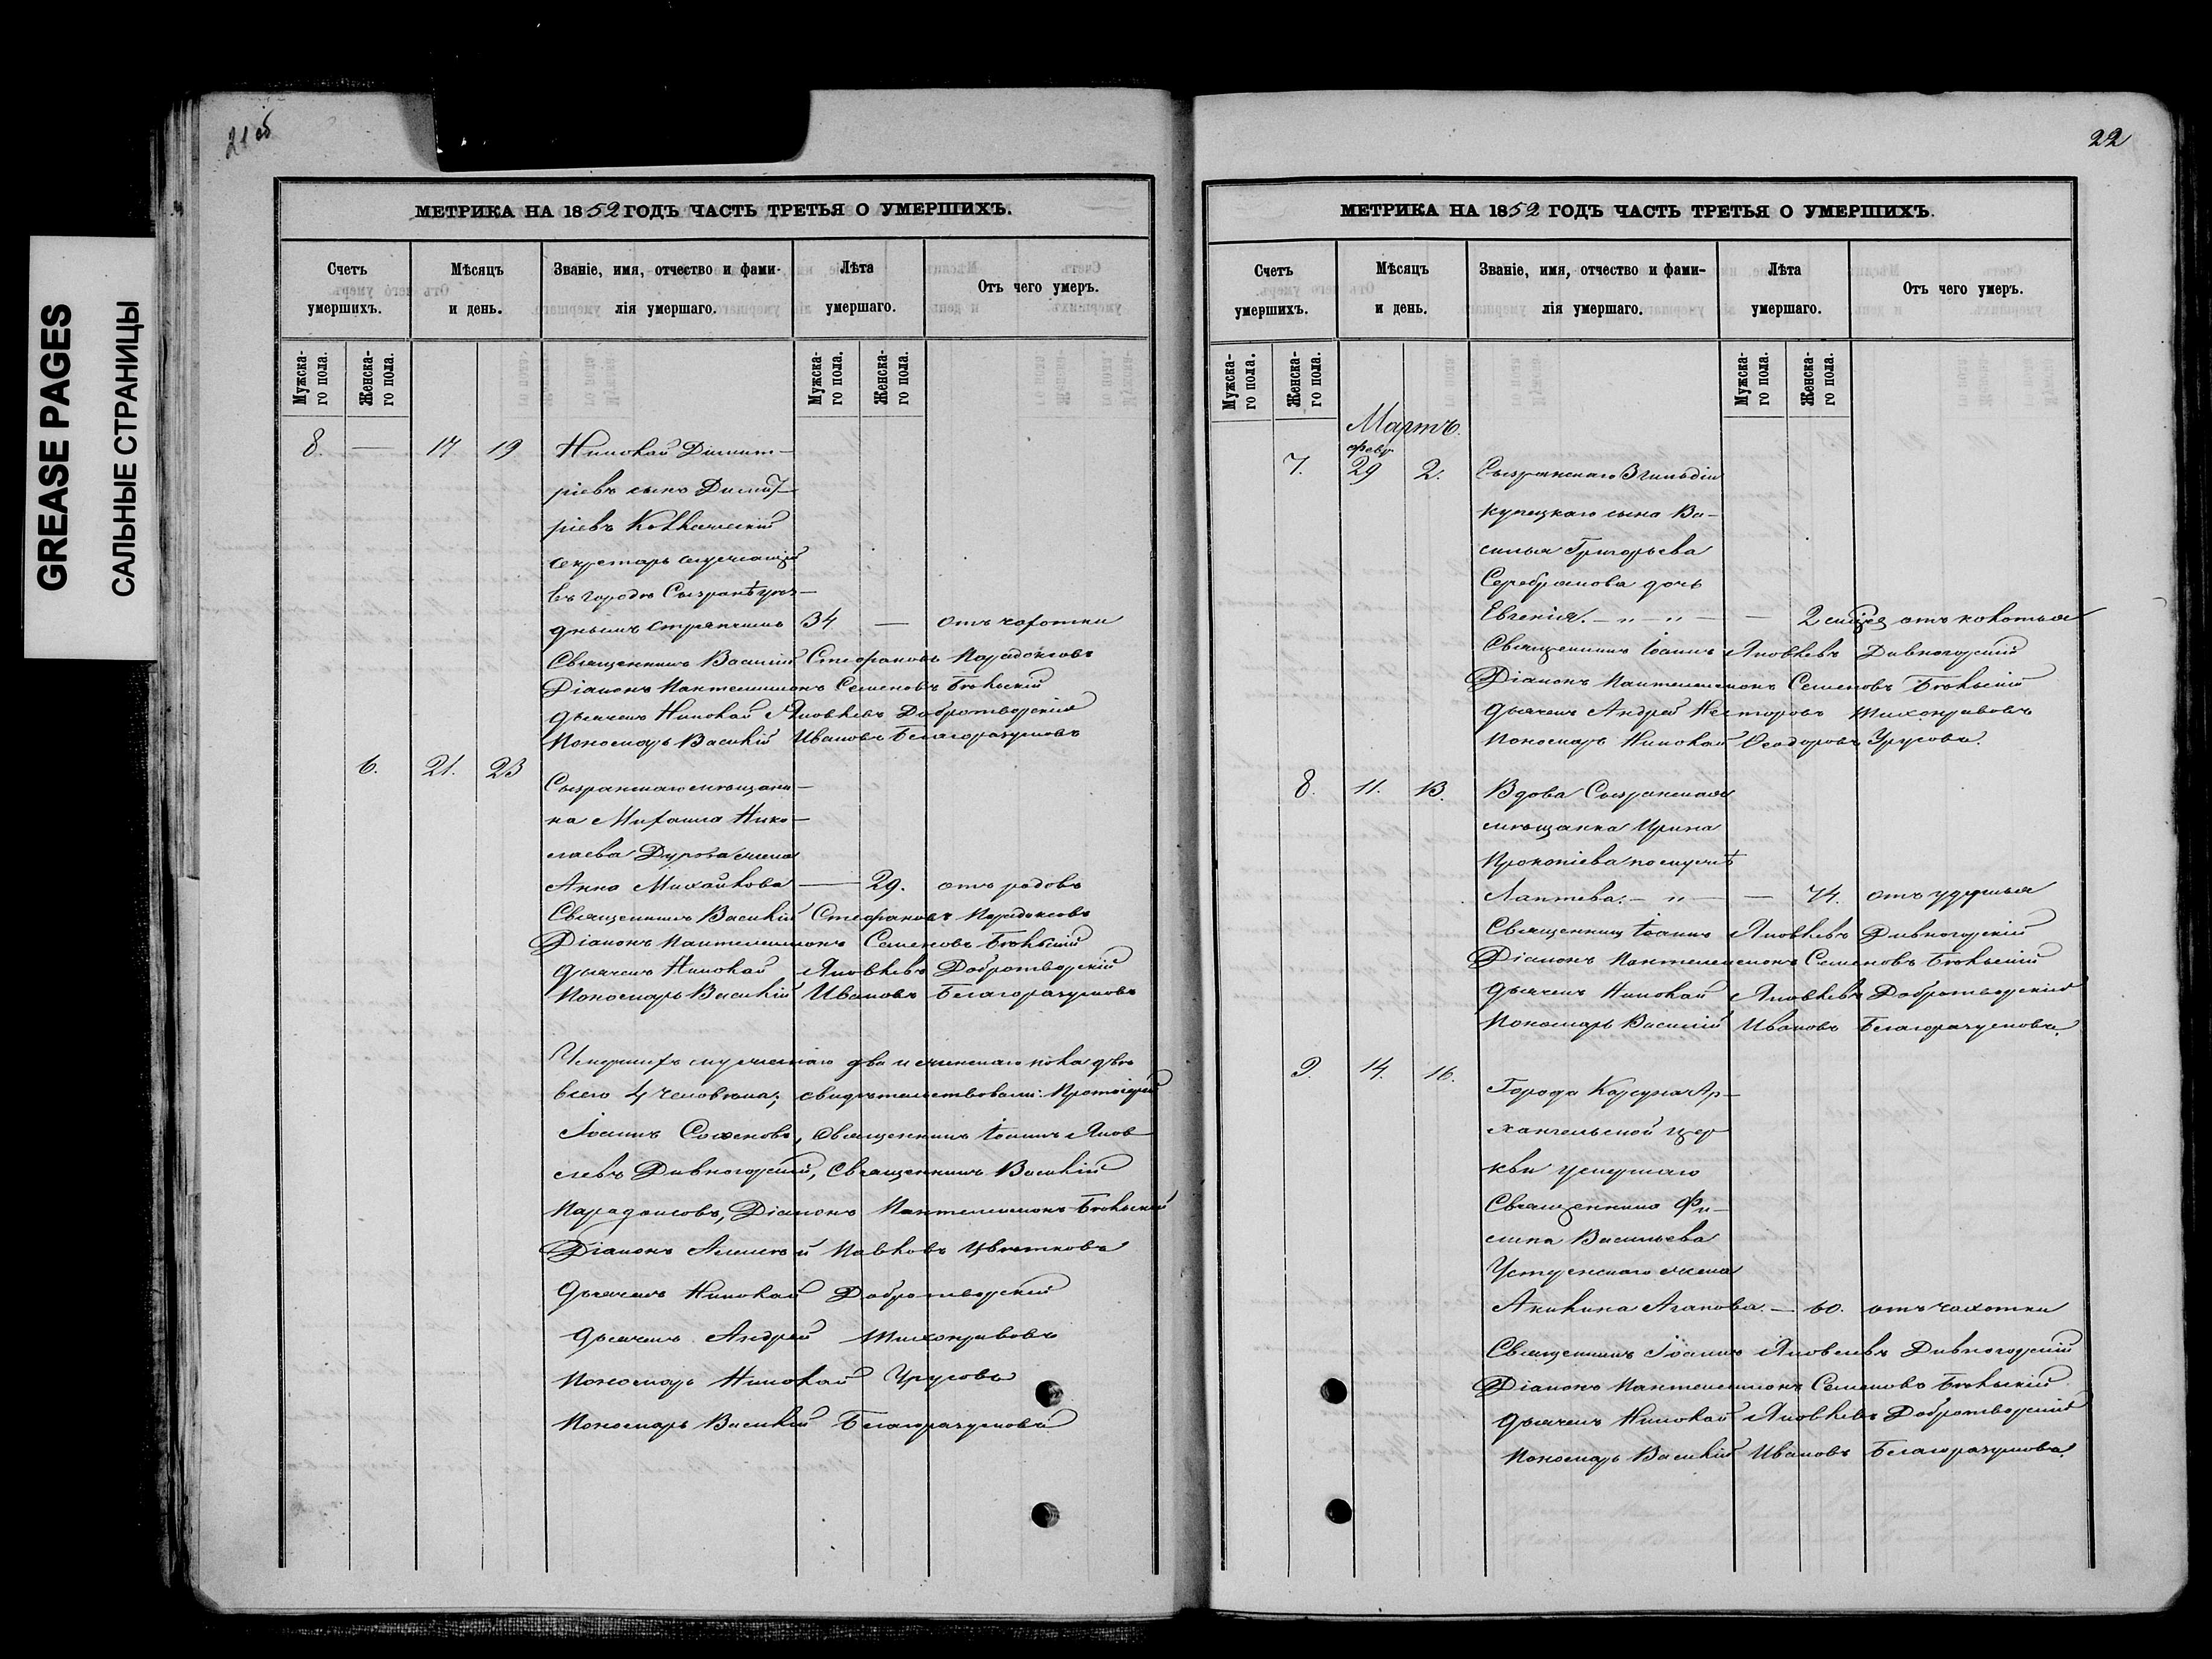 GREASE PAGES
САЛЬНЫЕ СТРАНИЦЫ
21 об
МЕТРИКА НА 1852 ГОДЪ ЧАСТЬ ТРЕТЬЯ О УМЕРШИХЪ.
Счетъ умершихъ.
Мѣсяцъ и день.
Званіе, имя, отчество и фами-
лія умершаго.
Лѣта умершаго.
Отъ чего умеръ.
Мужска-
го пола.
Женска-
го пола.
Мужска-
го пола.
Женска-
го пола.
8. — 17 19 Николай Димит-
ріевъ сынъ Димит
ріевъ Коллежскій
секретарь служащій
въ городѣ Сызранѣ уѣз-
днымъ стряпчимъ 34 — отъ чахотки
Священникъ Василій Стефановъ Парадоксовъ
Діаконъ Пантелеимонъ Семеновъ
дьячекъ Николай Яковлевъ Добротворскій
Пономарь Василій Ивановъ Благоразумовъ
6. 21. 23
Сызранскаго мѣщани-
на Михаила Нико-
лаева жена
Анна Михайлова — 29. отъ родовъ
Священникъ Василій Стефановъ Парадоксовъ
Діаконъ Пантелеимонъ Семеновъ
дьячекъ Николай Яковлевъ Добротворскій
Пономарь Василій Ивановъ Благоразумовъ
Умершихъ мужескаго два и женскаго пола двѣ
всего 4 человѣка; свидѣтельствовали: Протоіерей
Іоаннъ, Священникъ Іоаннъ Яков
левъ Дивногорскій, Священникъ Василій
Парадоксовъ, Діаконъ Пантелеимонъ
Діаконъ Алексѣй Павловъ Цвѣтковъ
Дьячекъ Николай Добротворскій
дьячекъ Андрей Тихонравовъ
Пономарь Николай Урусовъ
Пономарь Василій Благоразумовъ
22
МЕТРИКА НА 1852 ГОДЪ ЧАСТЬ ТРЕТЬЯ О УМЕРШИХЪ.
Счетъ умершихъ.
Мѣсяцъ и день.
Званіе, имя, отчество и фами-
лія умершаго.
Лѣта умершаго.
Отъ чего умеръ.
Мужска-
го пола.
Женска-
го пола.
Мужска-
го пола.
Женска-
го пола.
Мартъ.
февр
7. 29 2. Сызранскаго 3 гильдіи
купецкаго сына Ва-
силья Григорьева
Серебрякова дочь
Евгенія. — „ — „ — — 2 отъ колотья
Священникъ Іоаннъ Яковлевъ Дивногорскій
Діаконъ Пантелеимонъ Семеновъ
Дьячекъ Андрей Несторовъ Тихонравовъ
Пономарь Николай Ѳеодоровъ Урусовъ.
8. 11. 13. Вдова Сызранская
мѣщанка Ирина
Прокопіева по мужѣ
Лаптева. — „ — — 74. отъ удушья
Священникъ Іоаннъ Яковлевъ Дивногорскій
Діаконъ Пантелеимонъ Семеновъ
Дьячекъ Николай Яковлевъ Добротворскій
Пономарь Василій Ивановъ Благоразумовъ.
9. 14. 16.
Города Карсуна Ар-
хангельской цер
кви умершаго
Священника Фи-
липа Васильева
жена
Акилина Агапова. — 60. отъ чахотки
Священникъ Іоаннъ Яковлевъ Дивногорскій
Діаконъ Пантелеимонъ Семеновъ
Дьячекъ Николай Яковлевъ Добротворскій
Пономарь Василій Ивановъ Благоразумовъ.